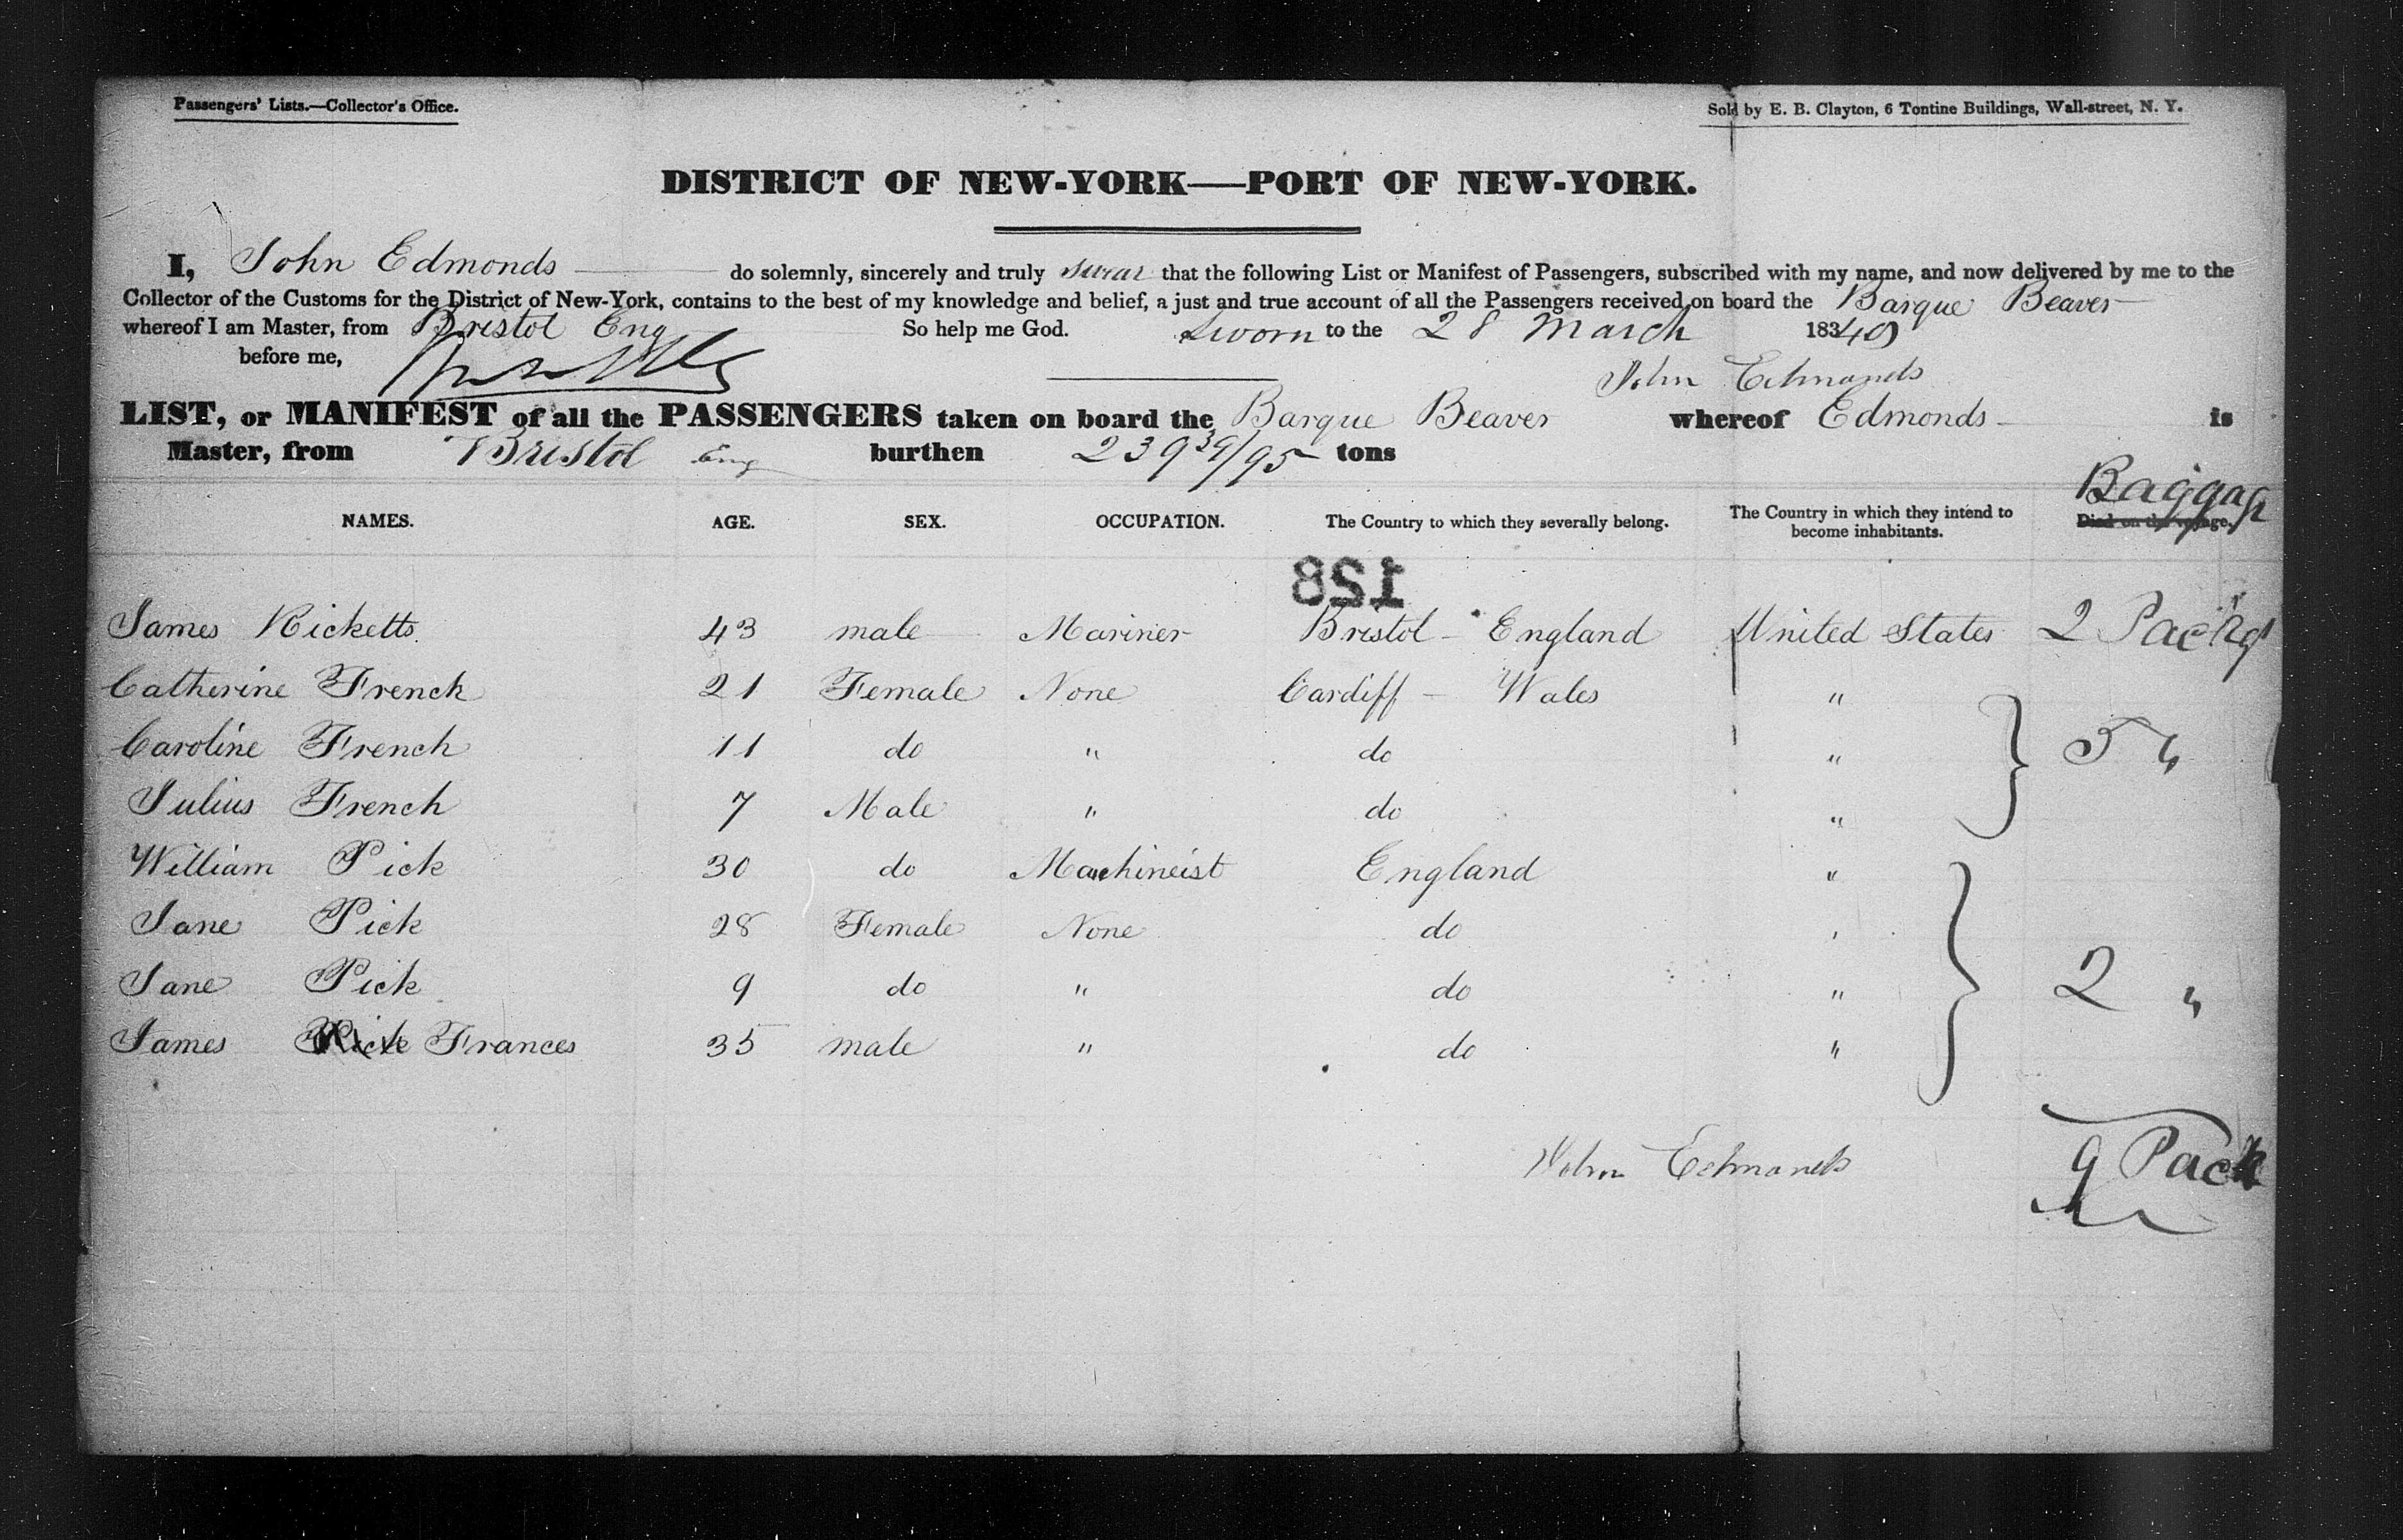 Passengers' Lists.—Collector's Office.
Sold by E. B. Clayton, 6 Tontine Buildings, Wall-street, N. Y.
DISTRICT OF NEW-YORK—PORT OF NEW-YORK.
I, John Edmonds do solemnly, sincerely and truly swear that the following List or Manifest of Passengers, subscribed with my name, and now delivered by me to the
Collector of the Customs for the District of New-York, contains to the best of my knowledge and belief, a just and true account of all the Passengers received on board the Barque Beaver
whereof I am Master, from Bristol Eng So help me God. Sworn to the 28 March 1840
before me,
John Edmonds
LIST, or MANIFEST of all the PASSENGERS taken on board the Barque Beaver whereof Edmonds is
Master, from Bristol Eng burthen 239 39/95 tons
Baggag
NAMES. AGE. SEX. OCCUPATION. The Country to which they severally belong. The Country in which they intend to become inhabitants. Died on the voyage.
128
James Ricketts. 43 male Mariner Bristol - England United States 2 Packgs
Catherine French 21 Female None Cardiff - Wales "
Caroline French 11 do " do " 5 "
Julius French 7 Male " do "
William Pick 30 do Machineist England "
Jane Pick 28 Female None do "
Jane Pick 9 do " do " 2 "
James Pick Frances 35 male " do "
John Edmonds 9 Pack